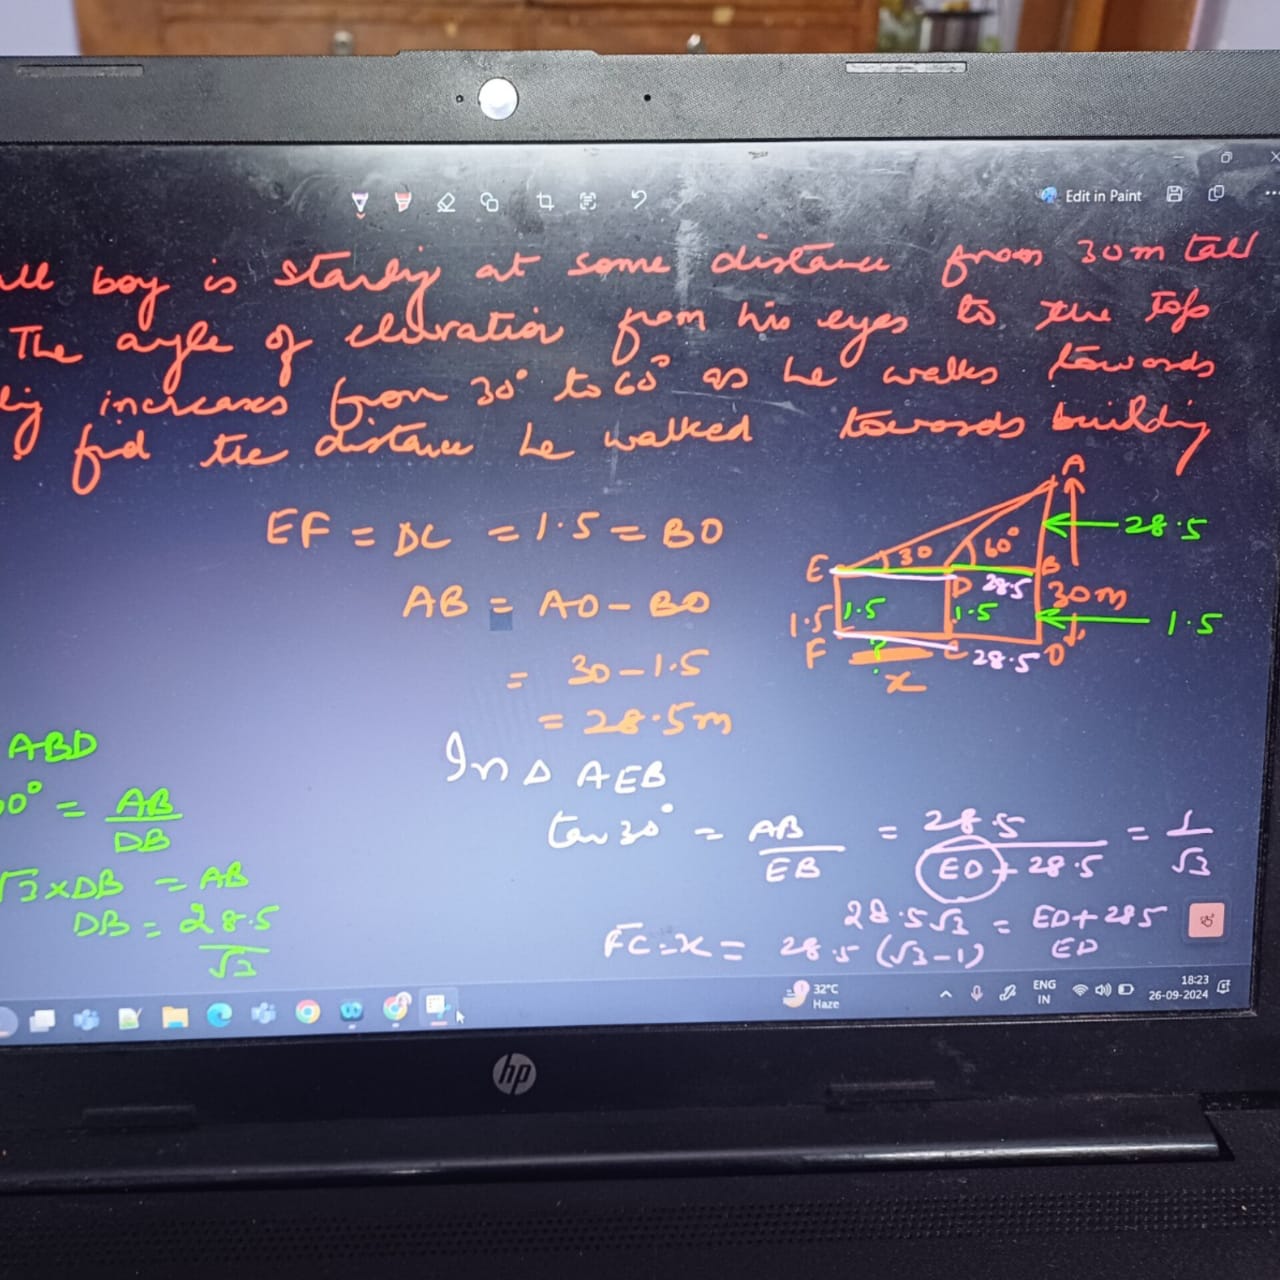 Edit in Paint
all boy is standing at some distance from 30m tall
The angle of elevation from his eyes to the top
increases from 30° to 60° as he walks towards
find the distance he walked towards building
EF = DC = 1.5 = BO
AB = AO - BO
= 30 - 1.5
= 28.5m
A
28.5
E 30 60° B
D 28.5
30m
1.5 1.5 1.5 1.5
F ? C 28.5 O
x
ABD
0° = AB
DB
√3 x DB = AB
DB = 28.5
√3
In △ AEB
tan 30° = AB = 28.5 = 1
EB ED + 28.5 √3
28.5√3 = ED + 28.5
FC = x = 28.5 (√3 - 1) ED
32°C
Haze
ENG
IN
18:23
26-09-2024
hp